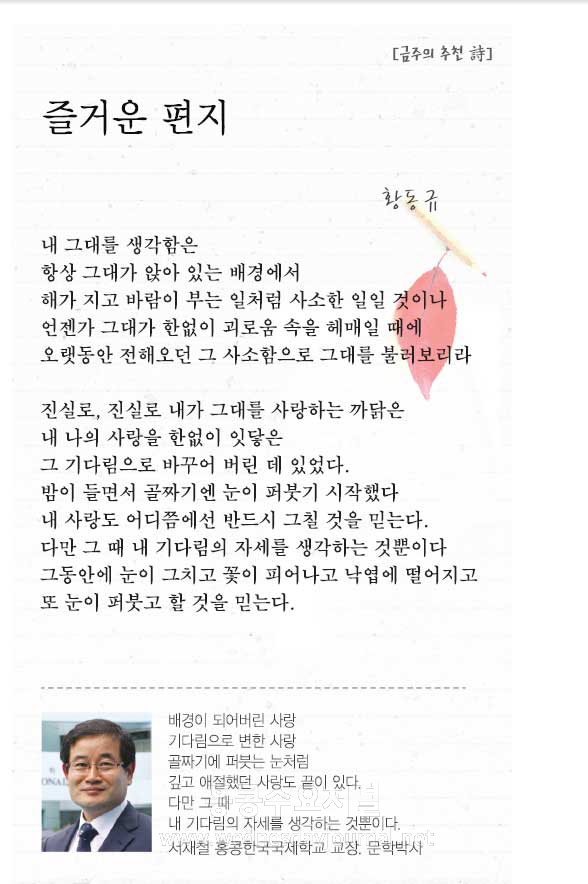 [금주의 추천 詩]
즐거운 편지
황동규
내 그대를 생각함은
항상 그대가 앉아 있는 배경에서
해가 지고 바람이 부는 일처럼 사소한 일일 것이나
언젠가 그대가 한없이 괴로움 속을 헤매일 때에
오랫동안 전해오던 그 사소함으로 그대를 불러보리라
진실로, 진실로 내가 그대를 사랑하는 까닭은
내 나의 사랑을 한없이 잇닿은
그 기다림으로 바꾸어 버린 데 있었다.
밤이 들면서 골짜기엔 눈이 퍼붓기 시작했다
내 사랑도 어디쯤에선 반드시 그칠 것을 믿는다.
다만 그 때 내 기다림의 자세를 생각하는 것뿐이다
그동안에 눈이 그치고 꽃이 피어나고 낙엽에 떨어지고
또 눈이 퍼붓고 할 것을 믿는다.
배경이 되어버린 사랑
기다림으로 변한 사랑
골짜기에 퍼붓는 눈처럼
깊고 애절했던 사랑도 끝이 있다.
다만 그 때
내 기다림의 자세를 생각하는 것뿐이다.
서재철 홍콩한국국제학교 교장. 문학박사
홍콩수요저널
www.wednesdayjournal.net